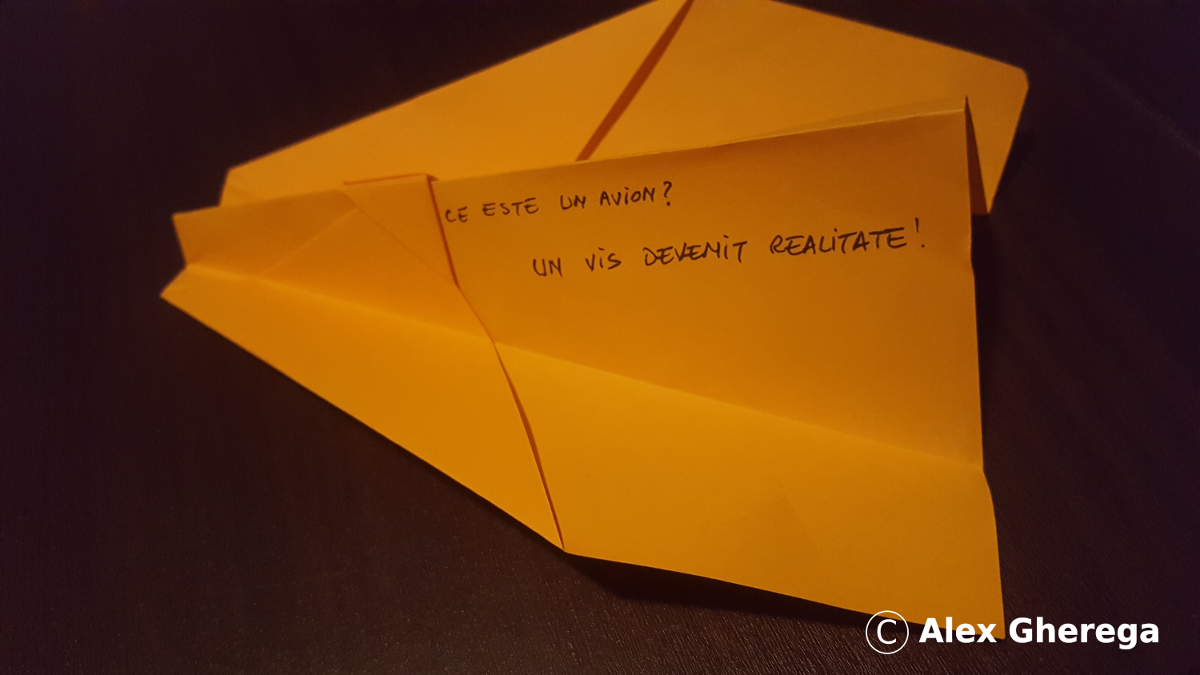 CE ESTE UN AViON?
UN ViS DEVENiT REALiTATE!
© Alex Gherega